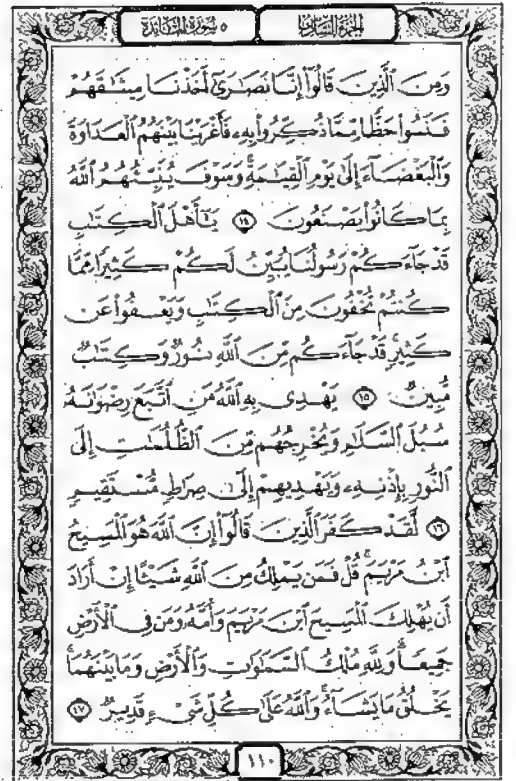 الجزء السادس
٥ سورة المائدة
وَمِنَ ٱلَّذِينَ قَالُوٓا۟ إِنَّا نَصَـٰرَىٰٓ أَخَذْنَا مِيثَـٰقَهُمْ
فَنَسُوا۟ حَظًّا مِّمَّا ذُكِّرُوا۟ بِهِۦ فَأَغْرَيْنَا بَيْنَهُمُ ٱلْعَدَاوَةَ
وَٱلْبَغْضَآءَ إِلَىٰ يَوْمِ ٱلْقِيَـٰمَةِ ۚ وَسَوْفَ يُنَبِّئُهُمُ ٱللَّهُ
بِمَا كَانُوا۟ يَصْنَعُونَ ١٤ يَـٰٓأَهْلَ ٱلْكِتَـٰبِ
قَدْ جَآءَكُمْ رَسُولُنَا يُبَيِّنُ لَكُمْ كَثِيرًا مِّمَّا
كُنتُمْ تُخْفُونَ مِنَ ٱلْكِتَـٰبِ وَيَعْفُوا۟ عَن
كَثِيرٍ ۚ قَدْ جَآءَكُم مِّنَ ٱللَّهِ نُورٌ وَكِتَـٰبٌ
مُّبِينٌ ١٥ يَهْدِى بِهِ ٱللَّهُ مَنِ ٱتَّبَعَ رِضْوَٰنَهُۥ
سُبُلَ ٱلسَّلَـٰمِ وَيُخْرِجُهُم مِّنَ ٱلظُّلُمَـٰتِ إِلَى
ٱلنُّورِ بِإِذْنِهِۦ وَيَهْدِيهِمْ إِلَىٰ صِرَٰطٍ مُّسْتَقِيمٍ
١٦ لَّقَدْ كَفَرَ ٱلَّذِينَ قَالُوٓا۟ إِنَّ ٱللَّهَ هُوَ ٱلْمَسِيحُ
ٱبْنُ مَرْيَمَ ۚ قُلْ فَمَن يَمْلِكُ مِنَ ٱللَّهِ شَيْـًٔا إِنْ أَرَادَ
أَن يُهْلِكَ ٱلْمَسِيحَ ٱبْنَ مَرْيَمَ وَأُمَّهُۥ وَمَن فِى ٱلْأَرْضِ
جَمِيعًا ۗ وَلِلَّهِ مُلْكُ ٱلسَّمَـٰوَٰتِ وَٱلْأَرْضِ وَمَا بَيْنَهُمَا ۚ
يَخْلُقُ مَا يَشَآءُ ۚ وَٱللَّهُ عَلَىٰ كُلِّ شَىْءٍ قَدِيرٌ ١٧
١١٠